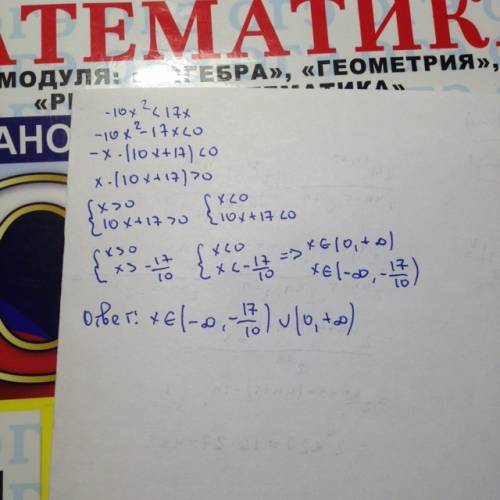 АТЕМАТИК
МОДУЛЯ: «АЛГЕБРА», «ГЕОМЕТРИЯ»,
-10x² < 17x
-10x² - 17x < 0
-x · (10x + 17) < 0
x · (10x + 17) > 0
{ x > 0 { x < 0
10x + 17 > 0 10x + 17 < 0
{ x > 0 { x < 0 => x ∈ (0, +∞)
x > -17/10 x < -17/10 x ∈ (-∞, -17/10)
Ответ: x ∈ (-∞, -17/10) ∪ (0, +∞)